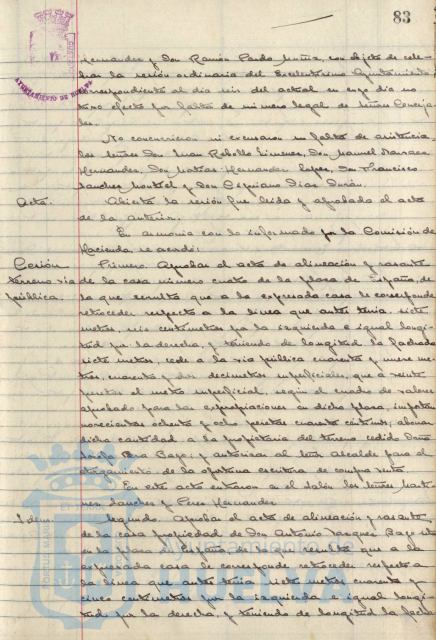 83
AYUNTAMIENTO DE HUELVA
Hernandez y Don Ramón Pardo Muñiz, con objeto de cele-
brar la sesión ordinaria del Excelentísimo Ayuntamiento
correspondiente al día seis del actual en cuyo día no
tuvo efecto por falta de número legal de Señores Conceja-
les.
No concurrieron ni excusaron su falta de asistencia
los señores Don Juan Rebollo Jimenez, Don Manuel Narvaez
Hernandez, Don Matias Hernandez Lopez, Don Francisco
Sanchez Montiel y Don Cipriano Diaz Durán.
Acta. Abierta la sesión fue leida y aprobada el acta
de la anterior.
En armonia con lo informado por la Comisión de
Hacienda se acordó:
Cesión Primero. Aprobar el acta de alineación y rasante
terreno via de la casa número cuatro de la plaza de España, de
pública. la que resulta que a la expresada casa le corresponde
retroceder respecto a la linea que antes tenia, siete
metros, seis centimetros por la izquierda e igual longi-
tud por la derecha, y teniendo de longitud la fachada
siete metros, cede a la via pública cuarenta y nueve me-
tros, cuarenta y dos decimetros superficiales, que a veinte
pesetas el metro superficial, según el cuadro de valores
aprobado para las expropiaciones en dicha plaza, importan
novecientas ochenta y ocho pesetas cuarenta céntimos; abonar
dicha cantidad a la propietaria del terreno cedido Doña
Josefa Baz Bago; y autorizar al Señor Alcalde para el
otorgamiento de la oportuna escritura de compra venta.
En este acto entraron en el Salón los Señores Marti-
nez, Sanchez y Perez Hernandez.
Idem. Segundo. Aprobar el acta de alineación y rasante
de la casa propiedad de Don Antonio Vazquez Bago sita
en la plaza de España de la que resulta que a la
expresada casa le corresponde retroceder respecto a
la linea que antes tenia siete metros cuarenta y
cinco centimetros por la izquierda e igual longi-
tud por la derecha, y teniendo de longitud la facha